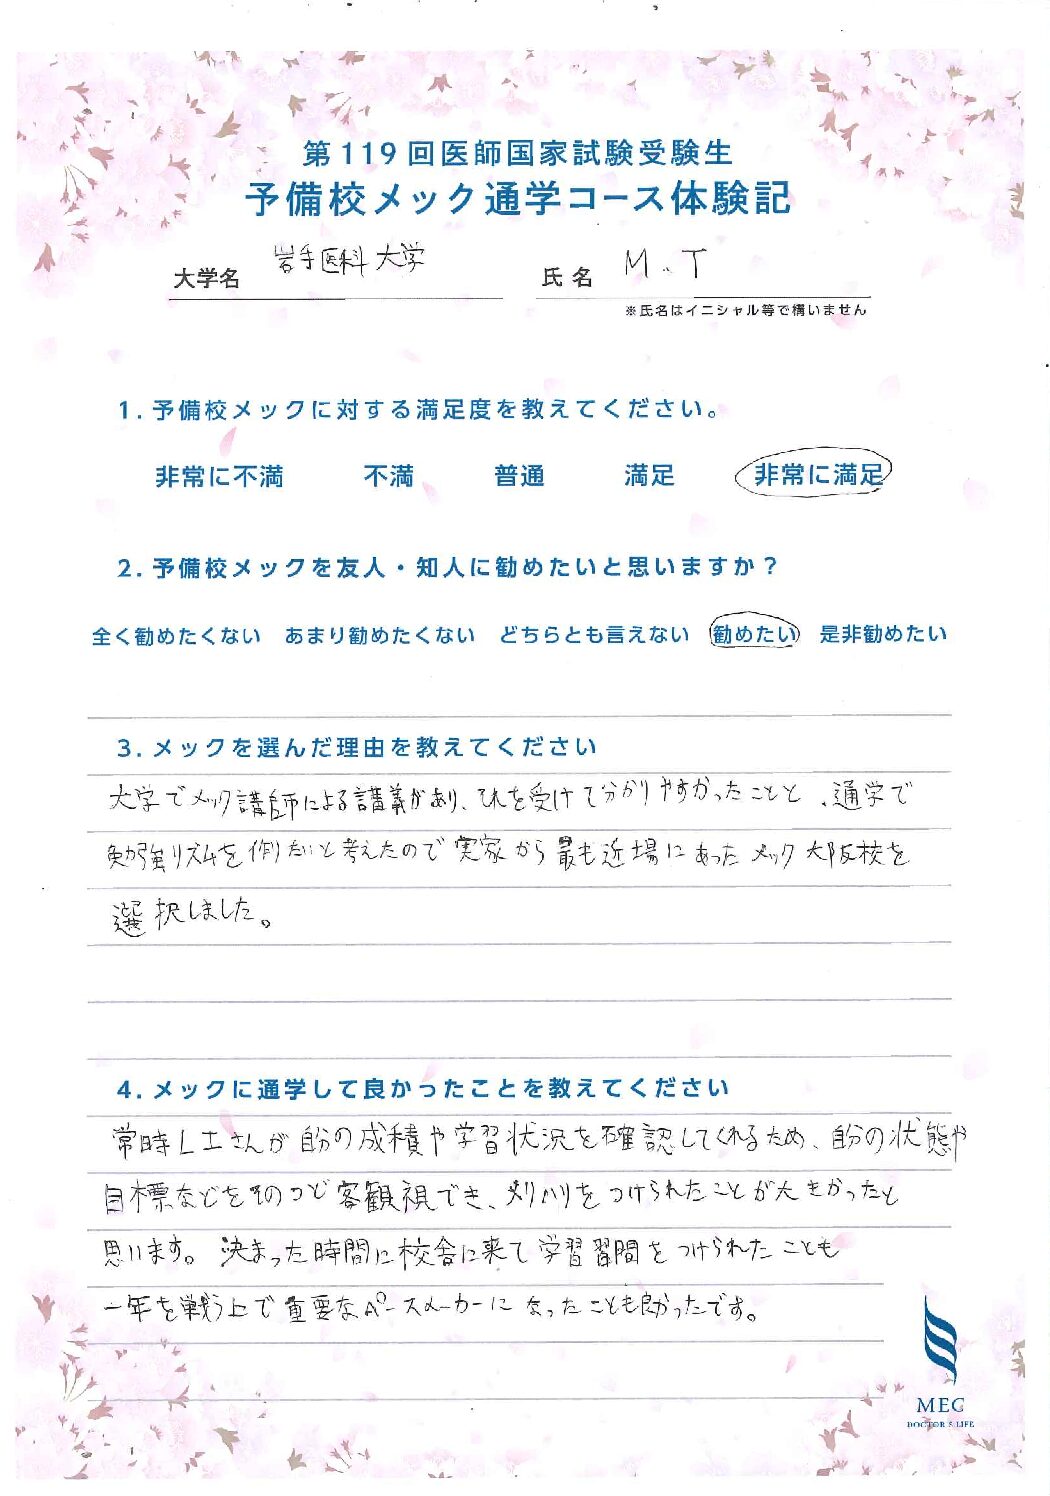 第119回医師国家試験受験生
予備校メック通学コース体験記
大学名 岩手医科大学 氏名 M.T
※氏名はイニシャル等で構いません
1.予備校メックに対する満足度を教えてください。
非常に不満 不満 普通 満足 非常に満足
2.予備校メックを友人・知人に勧めたいと思いますか？
全く勧めたくない あまり勧めたくない どちらとも言えない 勧めたい 是非勧めたい
3.メックを選んだ理由を教えてください
大学でメック講師による講義があり、それを受けて分かりやすかったことと、通学で
勉強リズムを作りたいと考えたので実家から最も近場にあったメック大阪校を
選択しました。
4.メックに通学して良かったことを教えてください
常時LTさんが自分の成績や学習状況を確認してくれるため、自分の状態や
目標などをそのつど客観視でき、メリハリをつけられたことが大きかったと
思います。決まった時間に校舎に来て学習習間をつけられたことも
一年を戦う上で重要なペースメーカーになったことも良かったです。
MEC
DOCTOR'S LIFE